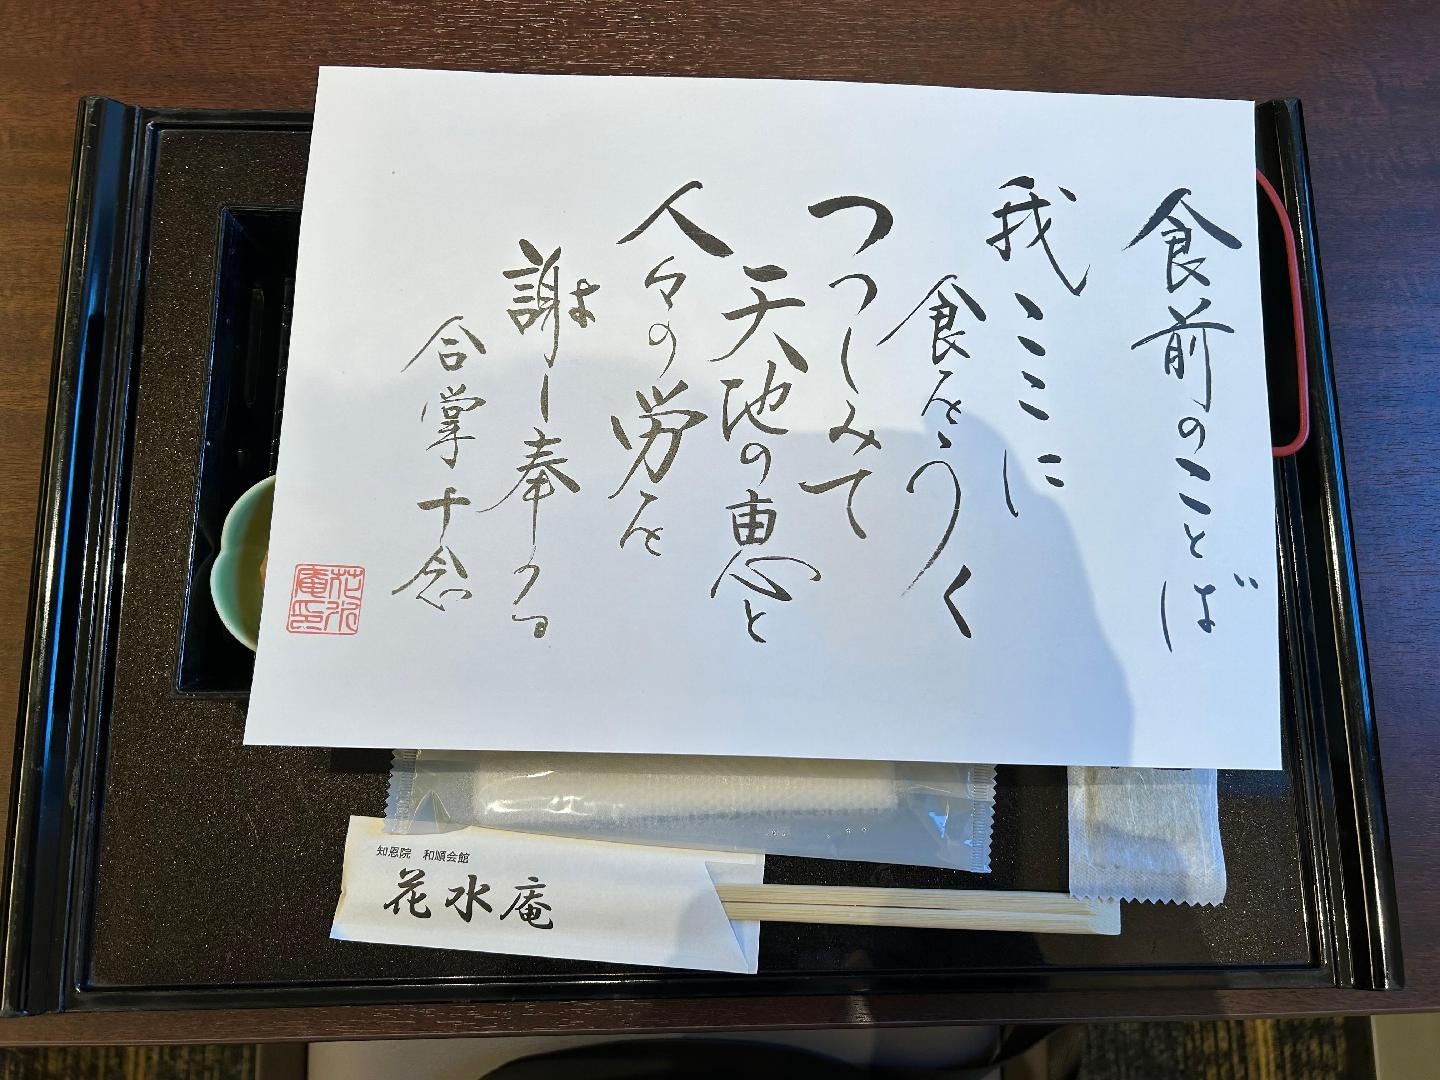 食前のことば
我ここに
食をうく
つつしみて
天地の恵と
人々の労を
謝し奉つる
合掌十念
花水
庵印
知恩院 和順会館
花水庵